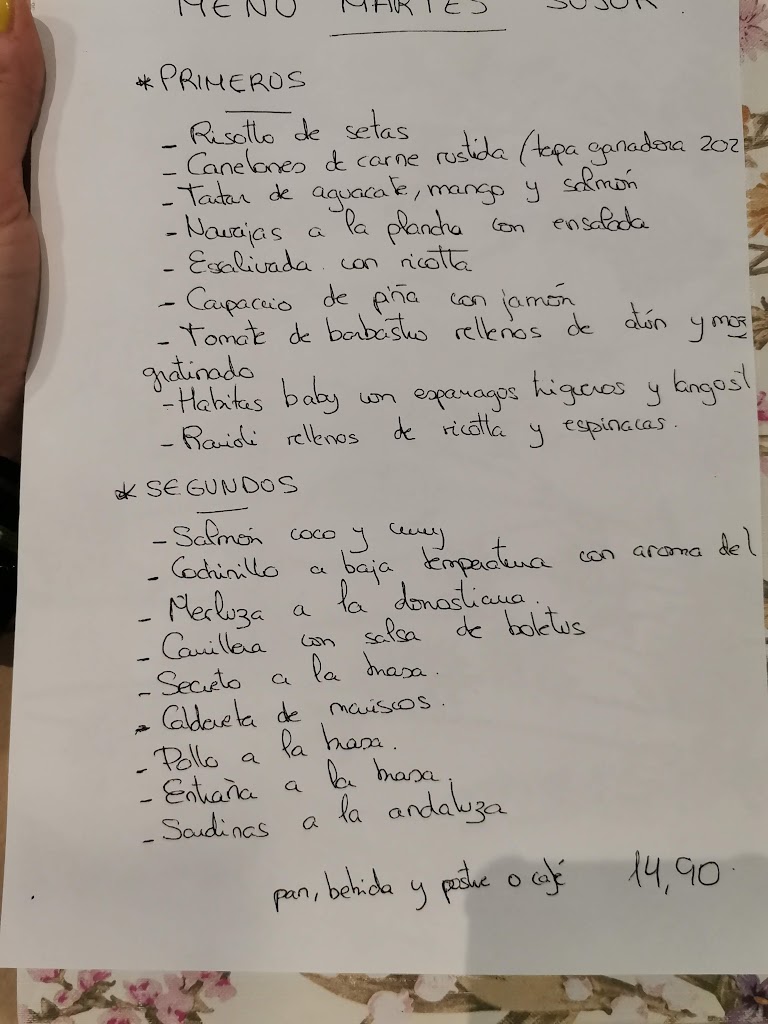 MENÚ MARTES
* PRIMEROS
- Risotto de setas
- Canelones de carne rustida (tapa ganadora 202
- Tartar de aguacate, mango y salmón
- Navajas a la plancha con ensalada
- Esalivada con ricotta
- Carpaccio de piña con jamón
- Tomate de barbastro rellenos de atún y moz
gratinado
- Habitas baby con esparagos trigueros y langost
- Ravioli rellenos de ricotta y espinacas.
* SEGUNDOS
- Salmón coco y curry
- Cochinillo a baja temperatura con aroma del
- Merluza a la donostiarra.
- Carrillera con salsa de boletus
- Secreto a la brasa.
- Caldereta de mariscos.
- Pollo a la brasa.
- Entraña a la brasa.
- Sardinas a la andaluza
pan, bebida y postre o café 14,90